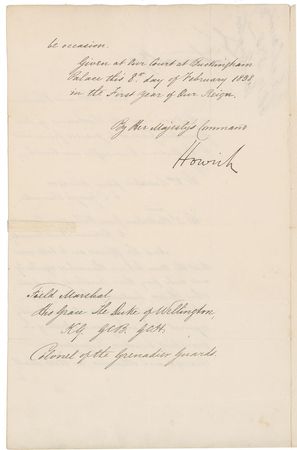 be occasion.
Given at Our Court at Buckingham
Palace this 8th day of February 1838,
in the First Year of Our Reign.
By Her Majesty's Command
Howick
Field Marshal
His Grace The Duke of Wellington,
K.G. G.C.B. G.C.H.
Colonel of the Grenadier Guards.